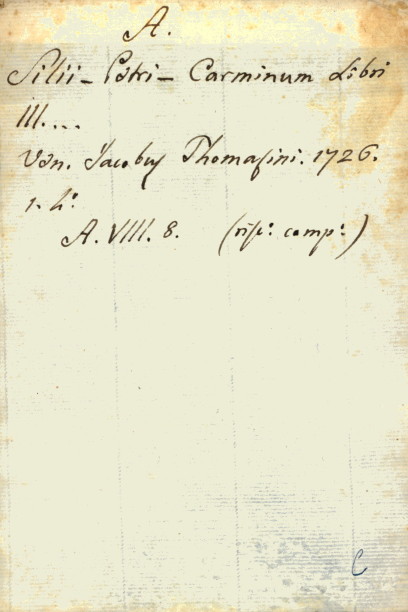 A.
Silii – Petri – Carminum Libri
III....
Ven. Jacobus Thomasini. 1726.
1. 4.º
A. VIII. 8. (risp: comp:)
C